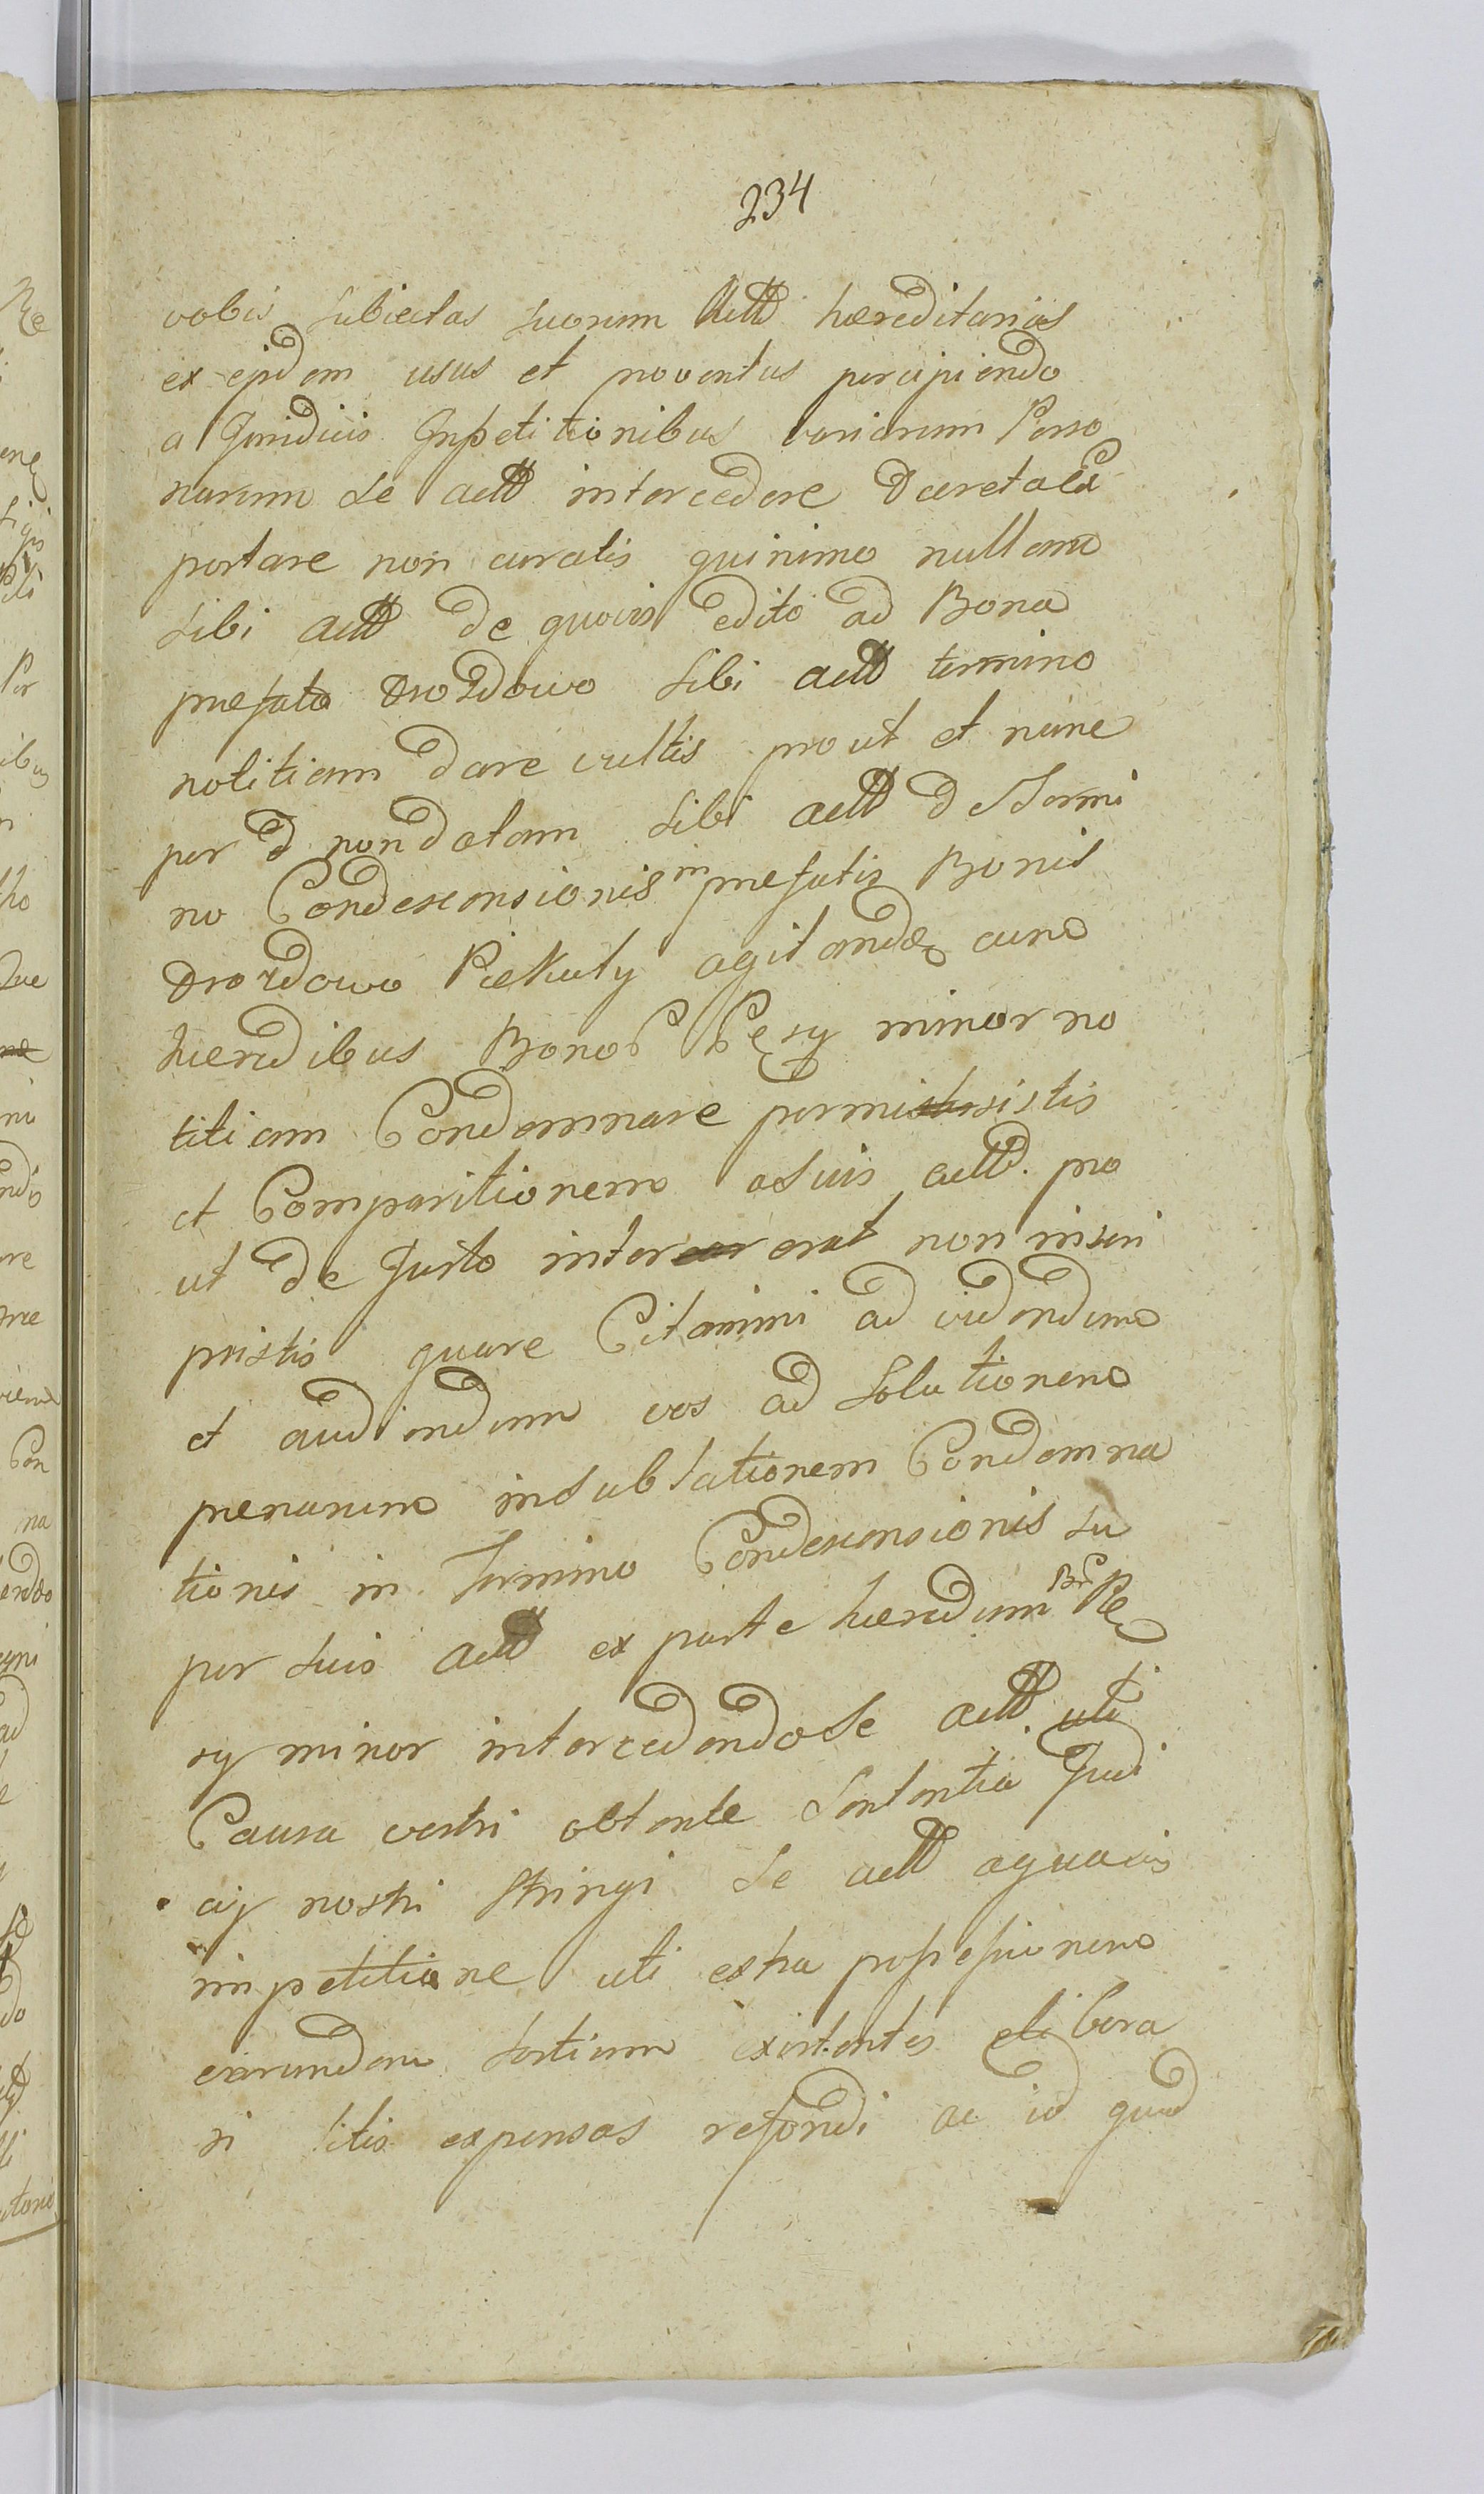 234
vobis subiectas suorum Actt haereditarias
ex ejsdem usus et proventus percipiendo
a Juridicis Inpetitionibus variarum Perso
narum se actt intercedere Decretales
portare non curatis quinimo nullam
sibi actt de quovis edito ad Bona
praefata Drozdowo sibi actt termino
notitiam dare vultis prout et nunc
per d non datam sibi actt de Termi
no Condescensionis in praefatis Bonis
Drozdowo Piekuty agitandae cum
haeredibus Bonor Ręsy minor no
titiam Condemnare permisistis
et Comparitionem a suis actt. pro
ut de Justo inter erat non insci
psistis quare Citamini ad videndum
et audiendum vos ad solutionem
paenarum in sublationem Condemna
tionis in Termino Condescensionis su
per suis actt ex parte haeredum Bnr Rę
sy minor intercedendo se actt uti
Causa vestri obtente Sententia Judi
cij nostri stringi se actt a quavis
impetitione uti extra possessionem
earundem sortium existentes elibera
ri litis expensas refondi ac id quod